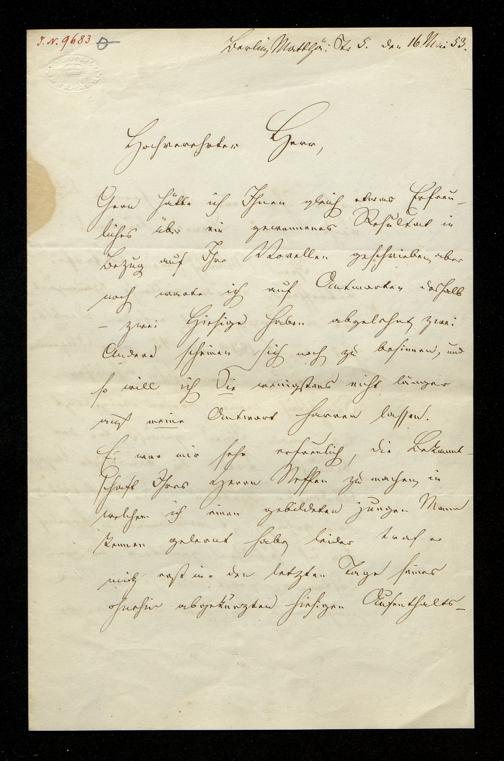 J. N. 9683
Berlin, Matthäi. Str 5. den 16 Mai 53.
Hochverehrter Herr,
Gern hätte ich Ihnen gleich etwas Erfreu-
liches über ein gewonnenes Resultat in
Bezug auf Ihre Novellen geschrieben, aber
noch warte ich auf Antworten deshalb
– zwei Hiesige haben abgelehnt, zwei
Andere scheinen sich noch zu besinnen, und
so will ich Sie wenigstens nicht länger
auf meine Antwort harren lassen.
Es war mir sehr erfreulich, die Bekannt-
schaft Ihres Herrn Neffen zu machen, in
welchem ich einen gebildeten jungen Mann
kennen gelernt habe, leider traf er
mich erst in den letzten Tage seines
ohnehin abgekürzten hiesigen Aufenthalts-